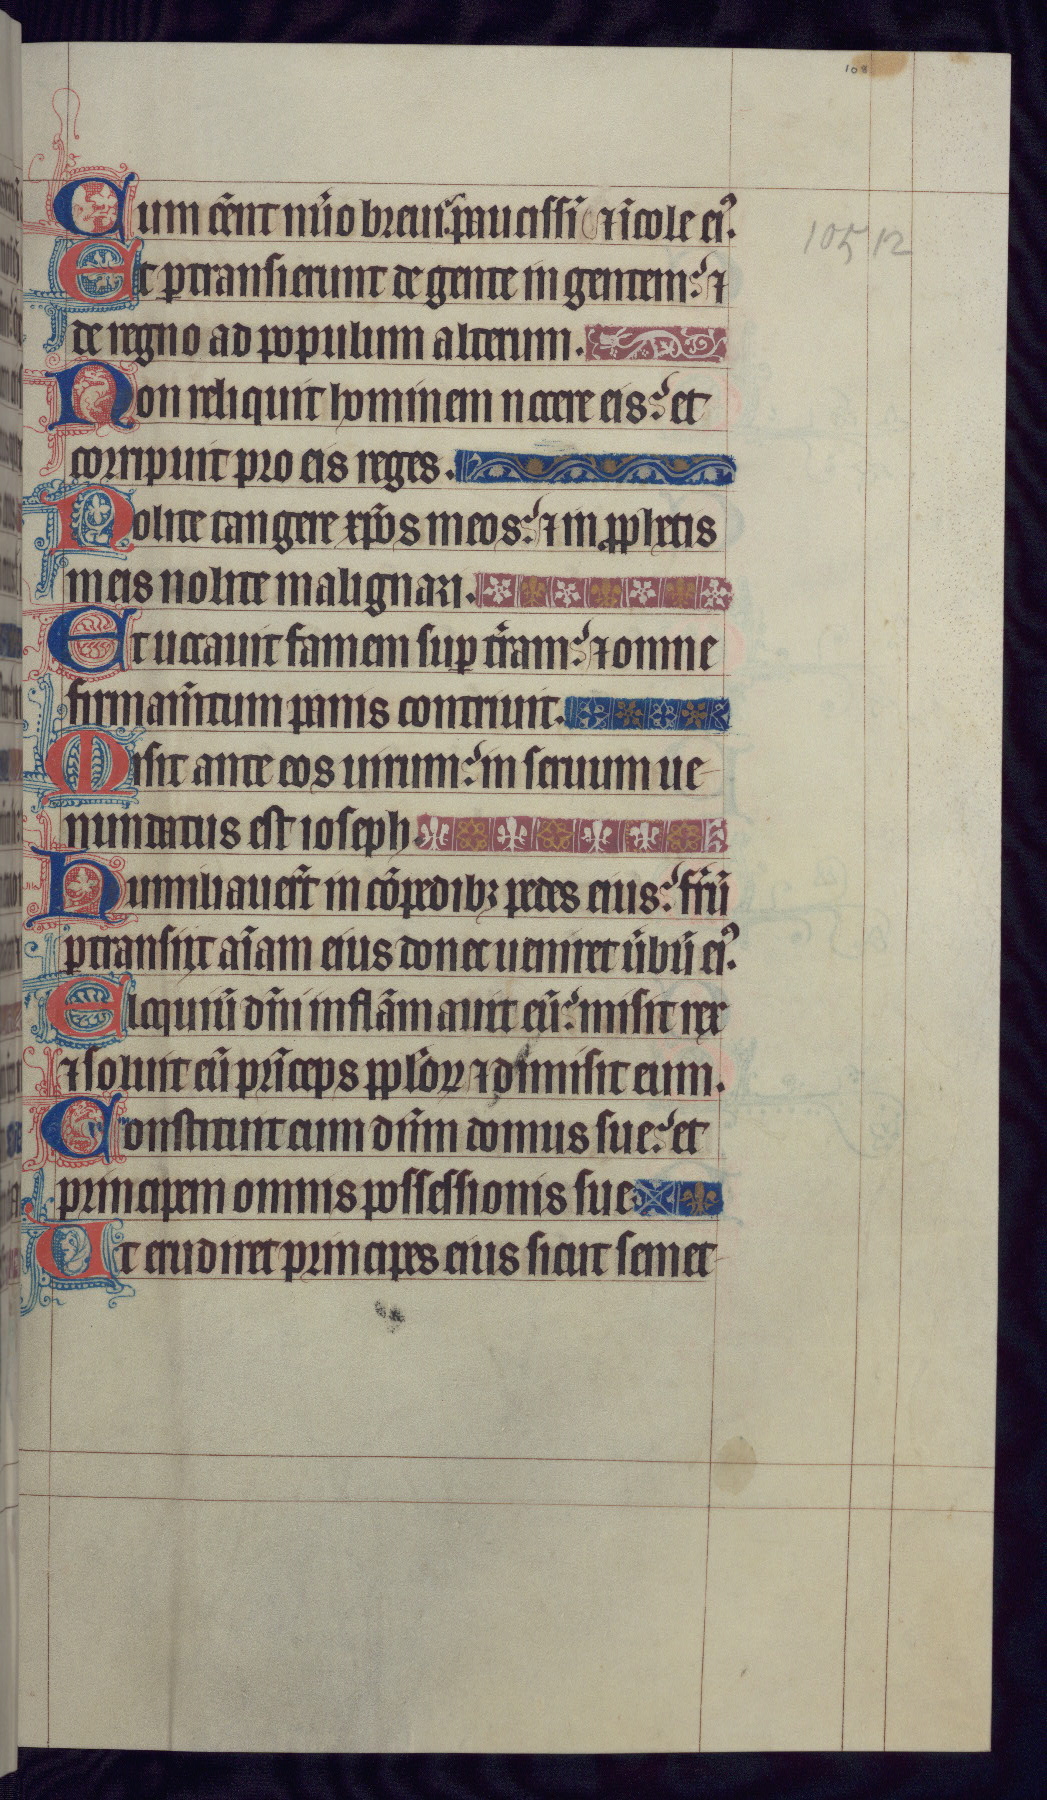 108
Cum eēnt nūo breui: paucissī ⁊ īcole eiꝰ.
105 12
Et ptransierunt de gente in gentem: ⁊
de regno ad populum alterum.
Non reliquit hominem nocere eis: et
corripuit pro eis reges.
Nolite tangere xp̄os meos: ⁊ in pphetis
meis nolite malignari.
Et uocauit famem sup t̄ram: ⁊ omne
firmam̄tum panis contriuit.
Misit ante eos uirum: in seruum ue-
nundatus est ioseph.
Humiliauer̄t in cōpedibꝫ pedes eius: frū
ptransiit aīam eius donec ueniret ūbū eiꝰ.
Eloquiū dn̄i inflāmauit eū: misit rex
⁊ soluit eū prīceps pplōꝝ ⁊ dimisit eum.
Constituit eum dn̄m domus sue: et
principem omnis possessionis sue.
Ut erudiret principes eius sicut semet-